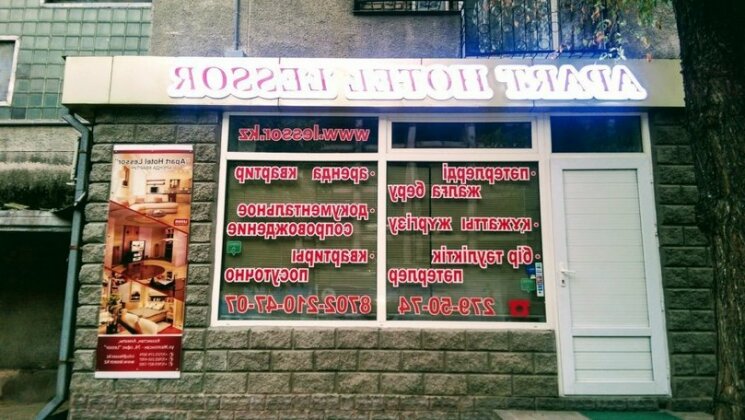 APART HOTEL LESSOR
www.lessor.kz
·пәтерлерді
жалға беру
·құжатты жүргізу
·бір тәуліктік
пәтерлер
279-50-74
·аренда квартир
·документальное
сопровождение
·квартиры
посуточно
8702-210-47-07
Apart Hotel Lessor
Казахстан, Алматы,